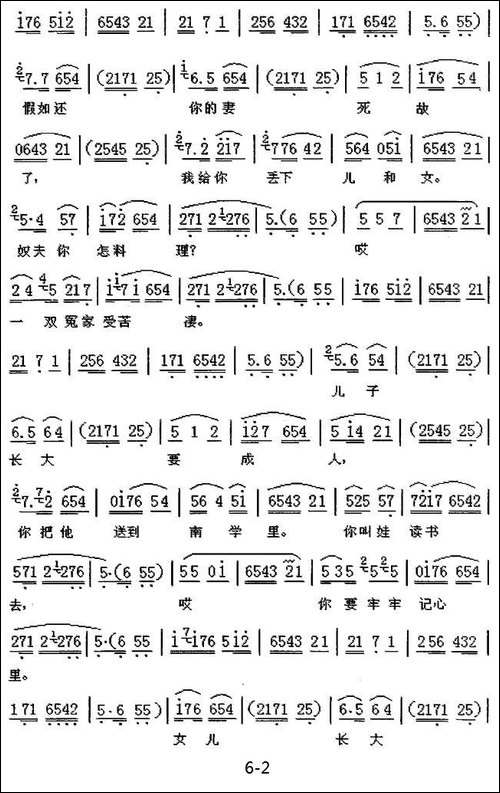 i76 5i2 | 6543 21 | 21 7 1 | 256 432 | 171 6542 | 5.6 55) |
2/7.7 654 | (2171 25) | 1/6.5 654 | (2171 25) | 5 1 2 | i76 5 4 |
假如还 你的妻 死 故
0643 21 | (2545 25) | 2/7.2 2i7 | 2/776 42 | 564 05i | 6543 21 |
了, 我给你 丢下 儿 和 女。
2/5·4 57 | i72 654 | 271 2 1/276 | 5.(6 55) | 5 5 7 | 6543 21 |
奴夫你 怎料 理? 哎
2 4 4/5 217 | i 1/7 i 654 | 271 2 1/276 | 5.(6 55 | i76 5i2 | 6543 21
一 双冤家 受苦 凄。
21 7 1 | 256 432 | 171 6542 | 5.6 55) | 2/5.6 54 | (2171 25) |
儿 子
6.5 64 | (2171 25) | 5 1 2 | i27 654 | 5 i4 21 | (2545 25) |
长 大 要 成 人,
2/7.7/2 654 | 0i76 54 | 56 4 5i | 6543 21 | 525 57 | 72i7 6542 |
你 把他 送到 南 学 里。 你叫娃 读书
571 2 1/276 | 5·(6 55) | 55 0i | 6543 21 | 535 2/5 2/5 | 0i76 654 |
去, 哎 你 要 牢 牢 记心
271 2 1/276 | 5·(6 55 | i 7/i76 5i2 | 6543 21 | 21 7 1 | 256 432 |
里。
171 6542 | 5·6 55) | i76 654 | (2171 25) | 6·5 64 | (2171 25) |
女 儿 长 大
6-2